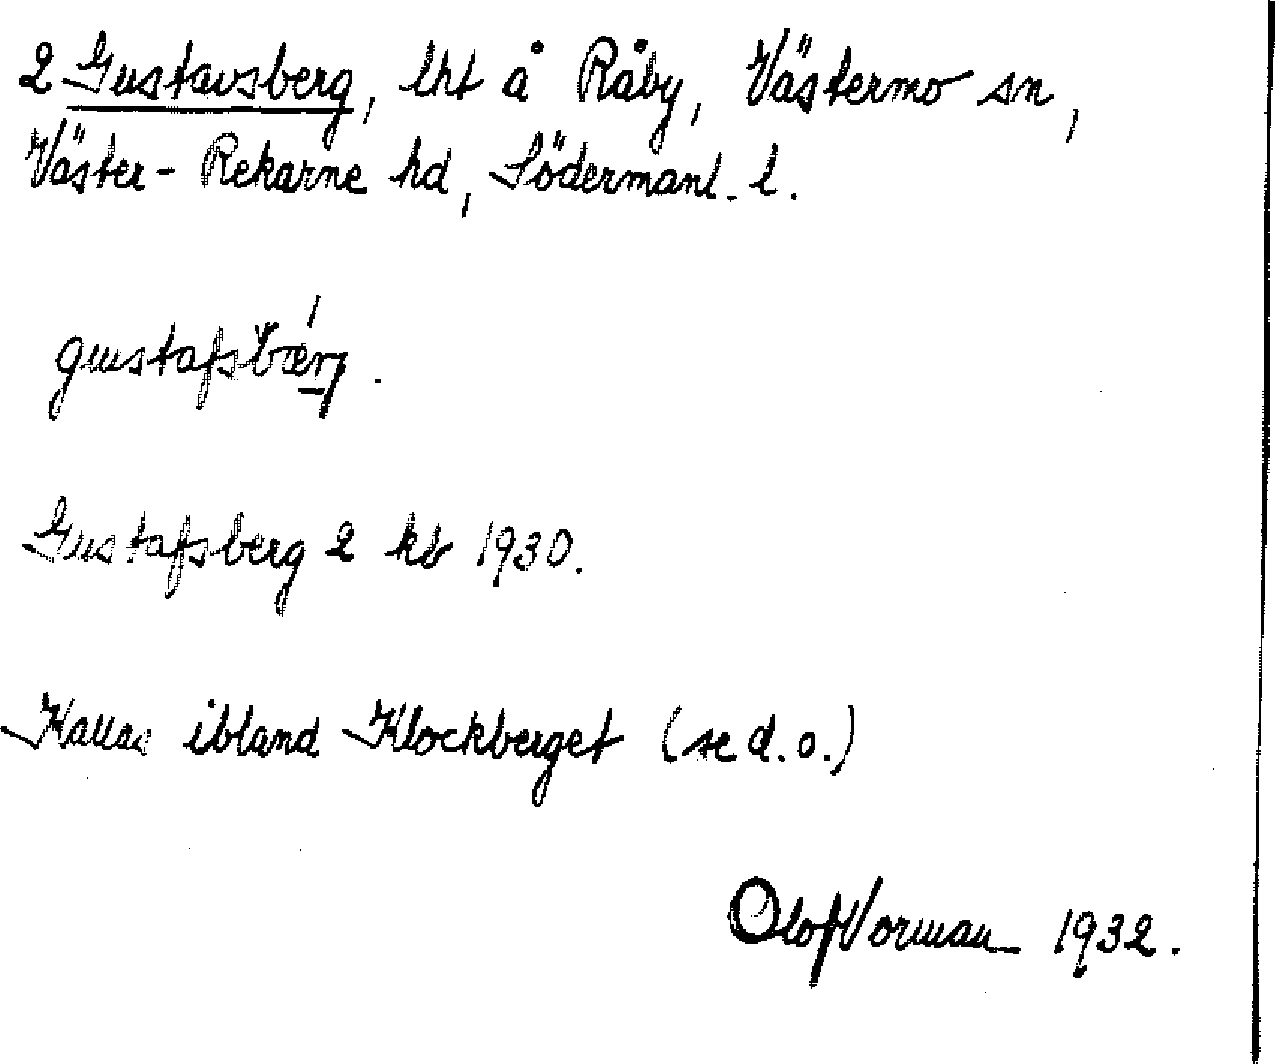 2 Gustavsberg, lht å Råby, Västermo sn,
Väster-Rekarne hd, Södermanl. l.
Gustafsberg 2 kb 1930.
Kallas ibland Klockberget (se d.o.)
Olof Vorman 1932.